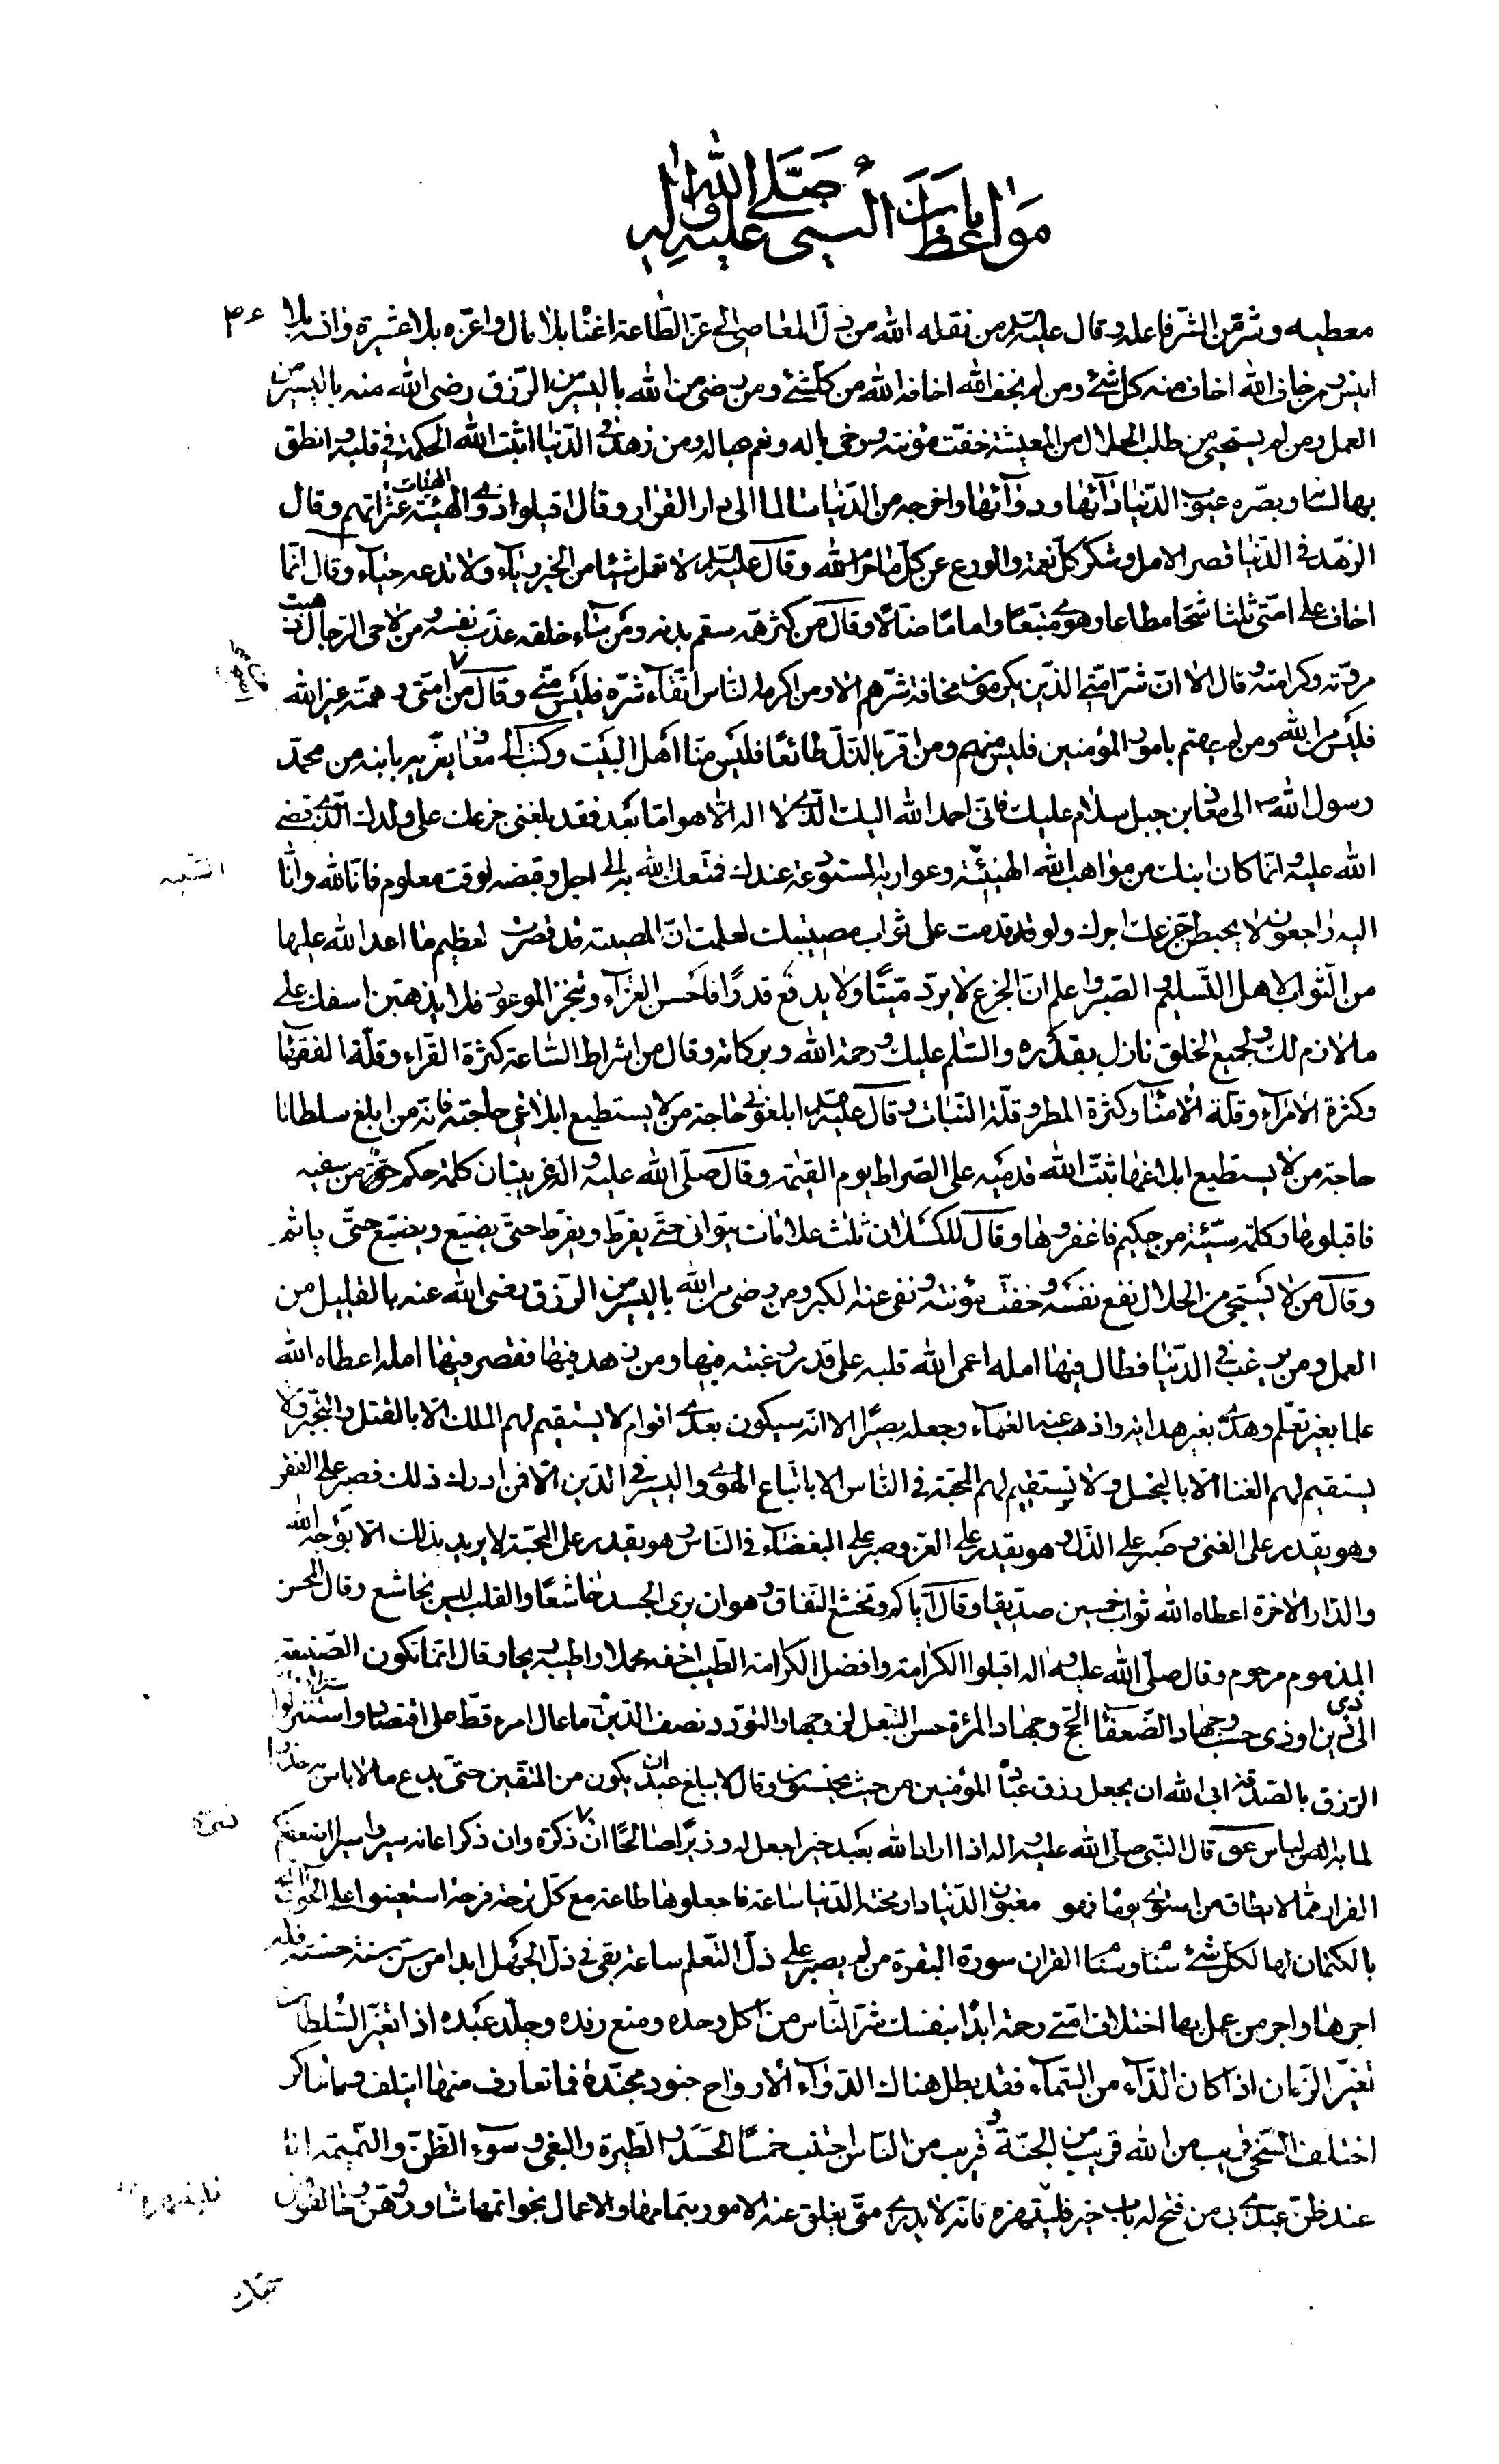 مواعظات النبي صلى الله عليه واله
معطيه وشر من الشر فاعله وقال عليه السلم من نقله الله من ذل المعاصي الى عز الطاعة اغناه بلا مال واعزه بلا عشيرة وانسه بلا
انيس ومن خاف الله اخاف منه كل شئ ومن لم يخف الله اخافه الله من كل شئ ومن رضى من الله باليسير من الرزق رضى الله منه باليسير من
العمل ومن لم يستحيي من طلب الحلال من المعيشة خفت مؤنته ورخى باله ونعم عياله ومن زهد في الدنيا اثبت الله الحكمة في قلبه وانطق
بها لسانه وبصره عيوب الدنيا دائها ودوائها واخرجه من الدنيا سالما الى دار القرار وقال اقيلوا ذوي الهيئة عثراتهم وقال
الزهد في الدنيا قصر الامل وشكر كل نعمة والورع عن كل ما حرم الله وقال عليه السلم لا تعمل شيئا من الخير رياء ولا تدعه حياء وقال انما
اخاف على امتي ثلثا شحا مطاعا وهوى متبعا واماما ضالا وقال من كثر همه سقم بدنه ومن ساء خلقه عذب نفسه ومن لاحى الرجال ذهبت
مروته وكرامته وقال الا ان شر امتي الذين يكرمون مخافة شرهم الا ومن اكرمه الناس اتقاء شره فليس مني وقال من امتي وهمته غير الله
فليس من الله ومن لم يهتم بامور المؤمنين فليس منهم ومن اقر بالذل طائعا فليس منا اهل البيت وكتب الى معاذ يعزيه بابنه من محمد
رسول الله ص الى معاذ بن جبل سلام عليك فاني احمد الله اليك الذي لا اله الا هو اما بعد فقد بلغني جزعك على ولدك الذي قضى
الله عليه وانما كان ابنك من مواهب الله الهنيئة وعواريه المستودعة عندك فمتعك الله به الى اجل وقبضه لوقت معلوم فانا لله وانا
اليه راجعون لا يحبطن جزعك اجرك ولو قد قدمت على ثواب مصيبتك لعلمت ان المصيبة قد قصرت لعظيم ما اعد الله عليها
من الثواب لاهل التسليم والصبر واعلم ان الجزع لا يرد ميتا ولا يدفع قدرا فاحسن العزاء وتنجز الموعود فلا يذهبن اسفك على
ما لازم لك ولجميع الخلق نازل بقدره والسلم عليك ورحمة الله وبركاته وقال من اشراط الساعة كثرة القراء وقلة الفقهاء
وكثرة الامراء وقلة الامناء وكثرة المطر وقلة النبات وقال عليه السلم ابلغوني حاجة من لا يستطيع ابلاغي حاجته فانه من ابلغ سلطانا
حاجة من لا يستطيع ابلاغها ثبت الله قدميه على الصراط يوم القيمة وقال صلى الله عليه واله غريبتان كلمة حكم من سفيه
فاقبلوها وكلمة سيئة من حكيم فاغفروها وقال للكسلان ثلث علامات يتوانى حتى يفرط ويفرط حتى يضيع ويضيع حتى ياثم
وقال من لا يستحي من الحلال نفع نفسه وخفت مؤنته ونفى عنه الكبر ومن رضى من الله باليسير من الرزق رضى الله عنه بالقليل من
العمل ومن يرغب في الدنيا فطال فيها امله اعمى الله قلبه على قدر رغبته فيها ومن زهد فيها فقصر فيها امله اعطاه الله
علما بغير تعلم وهدى بغير هداية واذهب عنه العماء وجعله بصيرا الا انه سيكون بعدي اقوام لا يستقيم لهم الملك الا بالقتل والتجبر ولا
يستقيم لهم الغنا الا بالبخل ولا يستقيم لهم المحبة في الناس الا باتباع الهوى واليسير في الدين الا فمن ادرك ذلك فصبر على الفقر
وهو يقدر على الغنى وصبر على الذل وهو يقدر على العز وصبر على البغضاء في الناس وهو يقدر على المحبة لا يريد بذلك الا وجه الله
والدار الاخرة اعطاه الله ثواب خمسين صديقا وقال اياكم وتخشع النفاق وهو ان يرى الجسد خاشعا والقلب ليس بخاشع وقال المحسن
المذموم مرحوم وقال صلى الله عليه واله اقبلوا الكرامة وافضل الكرامة الطيب اخفه محملا واطيبه ريحا وقال انما تكون الصنيعة
الى ذي دين او ذي حسب وجهاد الضعفاء الحج وجهاد المرأة حسن التبعل لزوجها والتودد نصف الدين وما عال امرء قط على اقتصاد واستنزلوا
الرزق بالصدقة ابى الله ان يجعل رزق عباده المؤمنين من حيث يحتسبون وقال لا يبلغ عبد ان يكون من المتقين حتى يدع ما لا باس به حذرا
لما به الباس عق قال النبي صلى الله عليه واله اذا اراد الله بعبد خيرا جعل له وزيرا صالحا ان ذكره وان ذكر اعانه
الفرار مما لا يطاق من استوى يوماه فهو مغبون الدنيا دار محنة الدنيا ساعة فاجعلوها طاعة مع كل ترحة فرحة استعينوا على
بالكتمان لها لكل شئ سنا وسنا القران سورة البقرة من لم يصبر على ذل التعلم ساعة بقى في ذل الجهل ابدا من سن سنة حسنة فله
اجرها واجر من عمل بها اختلاف امتي رحمة ابدا بنفسك شر الناس من اكل وحده ومنع رفده وجلد عبده اذا تغير السلطان
تغير الزمان اذا كان الداء من السماء فقد بطل هناك الدواء الارواح جنود مجندة فما تعارف منها ايتلف وما تناكر
اختلف السخي قريب من الله قريب من الجنة قريب من الناس اجتنب خمسا الحسد والطيرة والبغي وسوء الظن والنميمة انا
عند ظن عبدي بي من فتح له باب خير فلينتهزه فانه لا يدري متى يغلق عنه الامور بتمامها والاعمال بخواتمها شاوروهن وخالفوهن